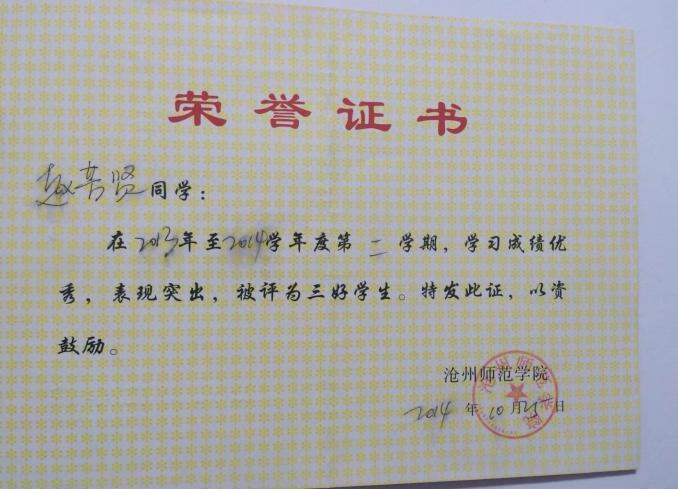 荣誉证书
赵芳贤同学：
在2013年至2014学年度第二学期，学习成绩优
秀，表现突出，被评为三好学生。特发此证，以资
鼓励。
沧州师范学院
2014年10月25日
沧州师范学院